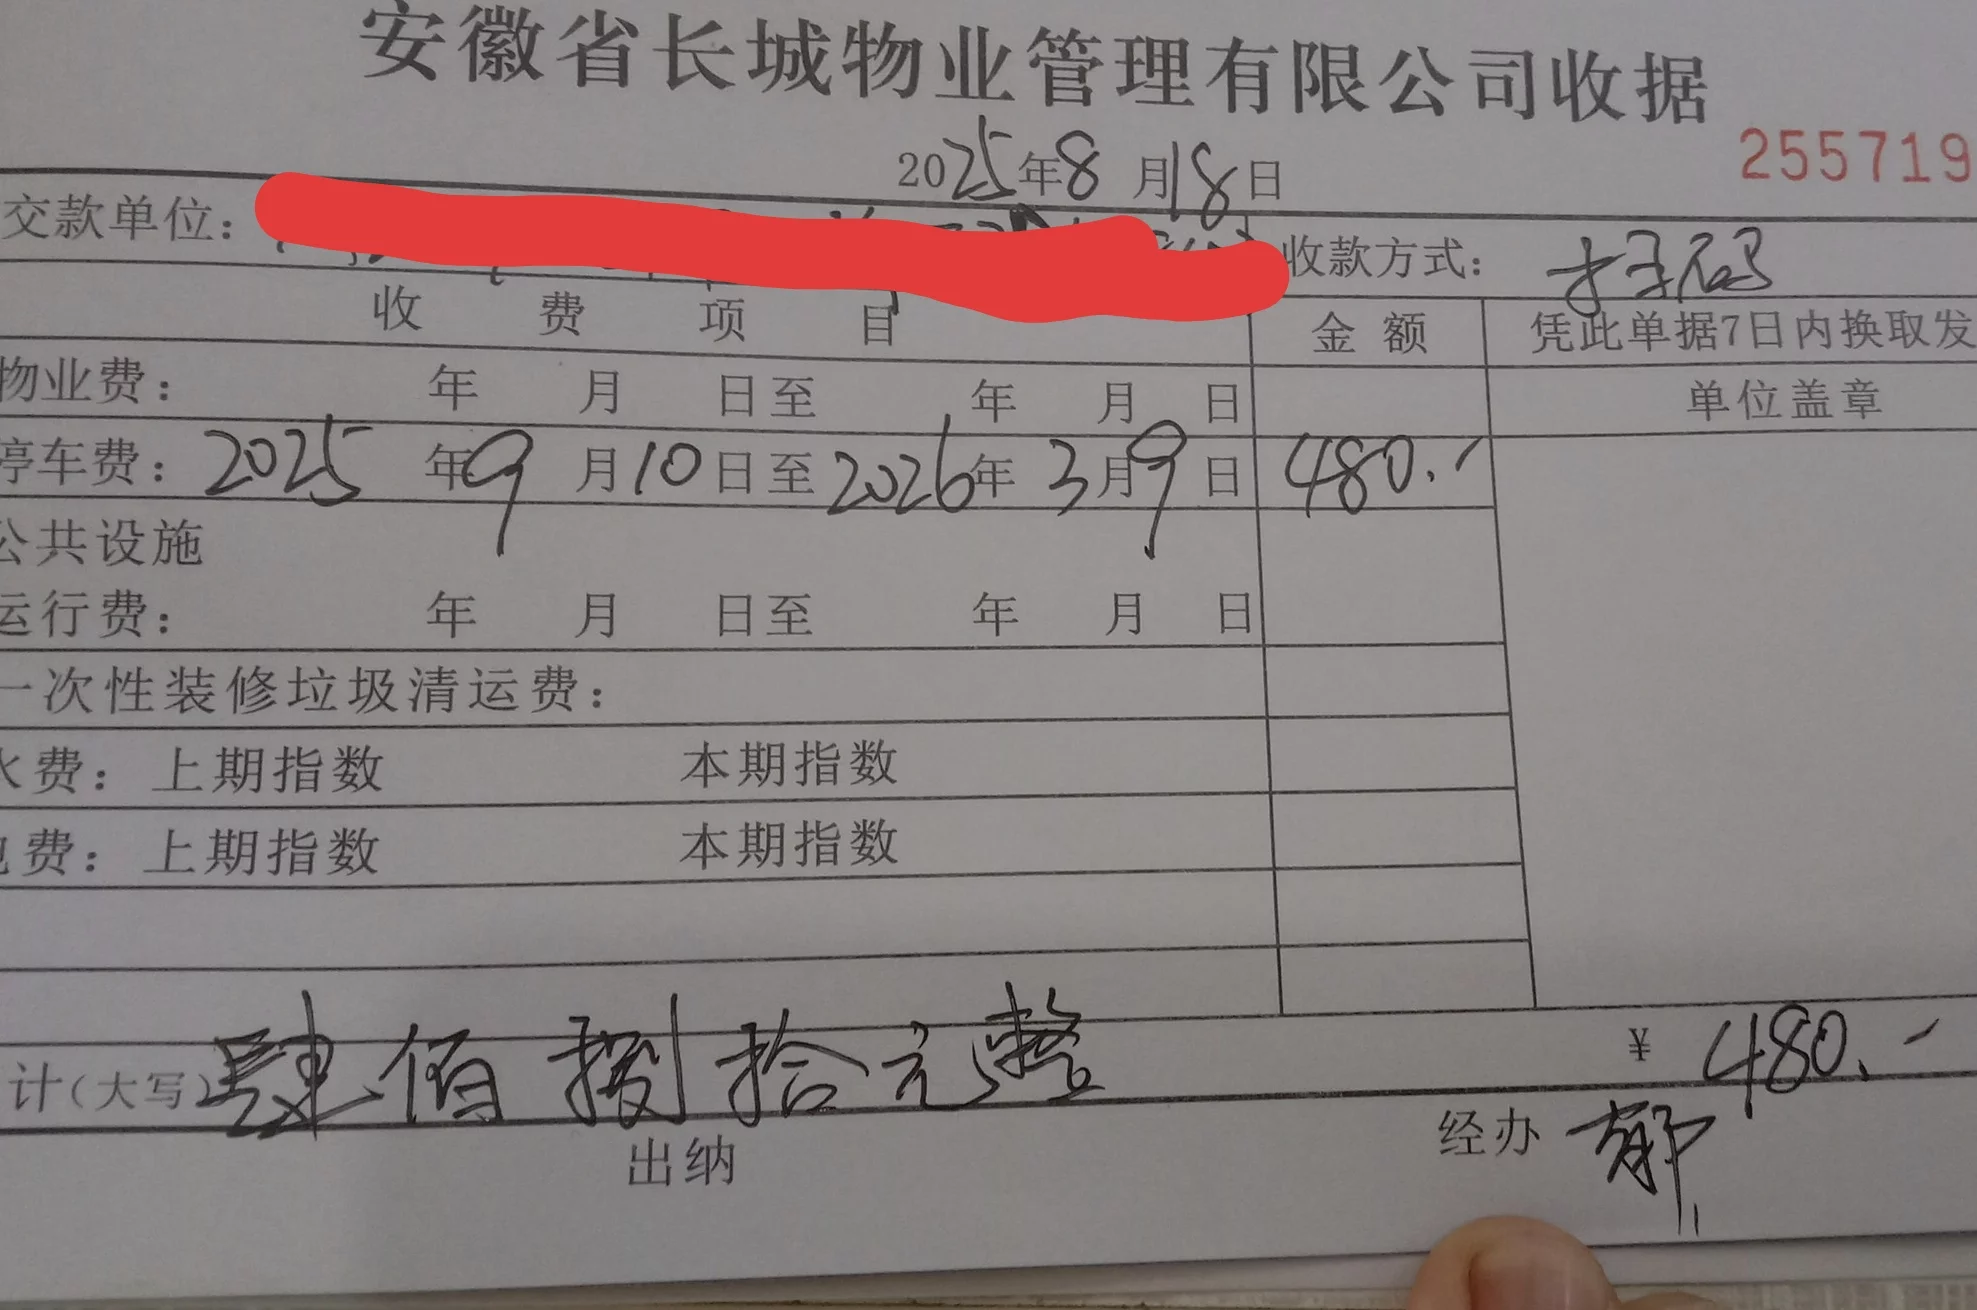 安徽省长城物业管理有限公司收据
2025年8月18日
255719
交款单位：
收款方式：扫码
收费项目 金额 凭此单据7日内换取发
物业费： 年 月 日至 年 月 日 单位盖章
停车费：2025年9月10日至2026年3月9日 480.-
公共设施
运行费： 年 月 日至 年 月 日
一次性装修垃圾清运费：
水费：上期指数 本期指数
电费：上期指数 本期指数
计（大写）肆佰捌拾元整 ¥ 480.-
出纳 经办 郁